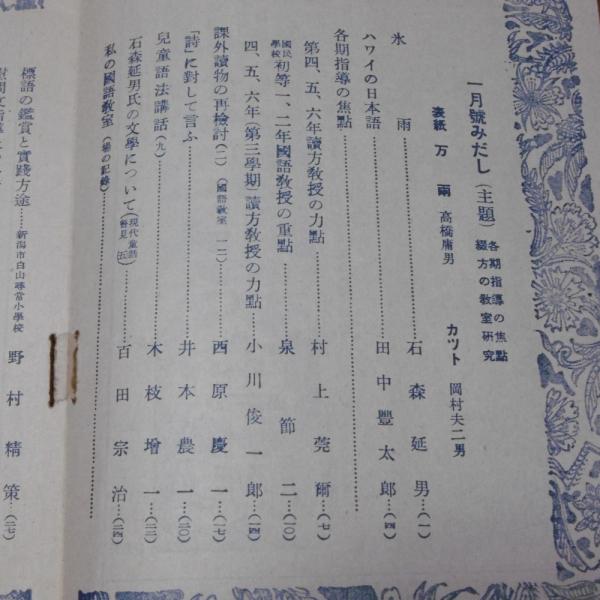 一月號みだし（主題）各期指導の焦點
綴方の教室研究
表紙 万雨 高橋庸男
カツト 岡村夫二男
氷雨……石森延男…(一)
ハワイの日本語……田中豐太郎…(四)
各期指導の焦點……
第四、五、六年讀方教授の力點……村上莞爾…(七)
國民學校初等一、二年國語教授の重點……泉節二…(一〇)
四、五、六年「第三學期」讀方教授の力點……小川俊一郎…(一四)
課外讀物の再檢討(二)(國語教室 一二)……西原慶一…(一七)
「詩」に對して言ふ……井本農一…(二〇)
兒童語法講話(九)……木枝增一…(二二)
石森延男氏の文學について(現代童話管見 五)……百田宗治…(二四)
私の國語教室(業の記錄)……
標語の鑑賞と實踐方途……新潟市白山尋常小學校 野村精策…(二七)